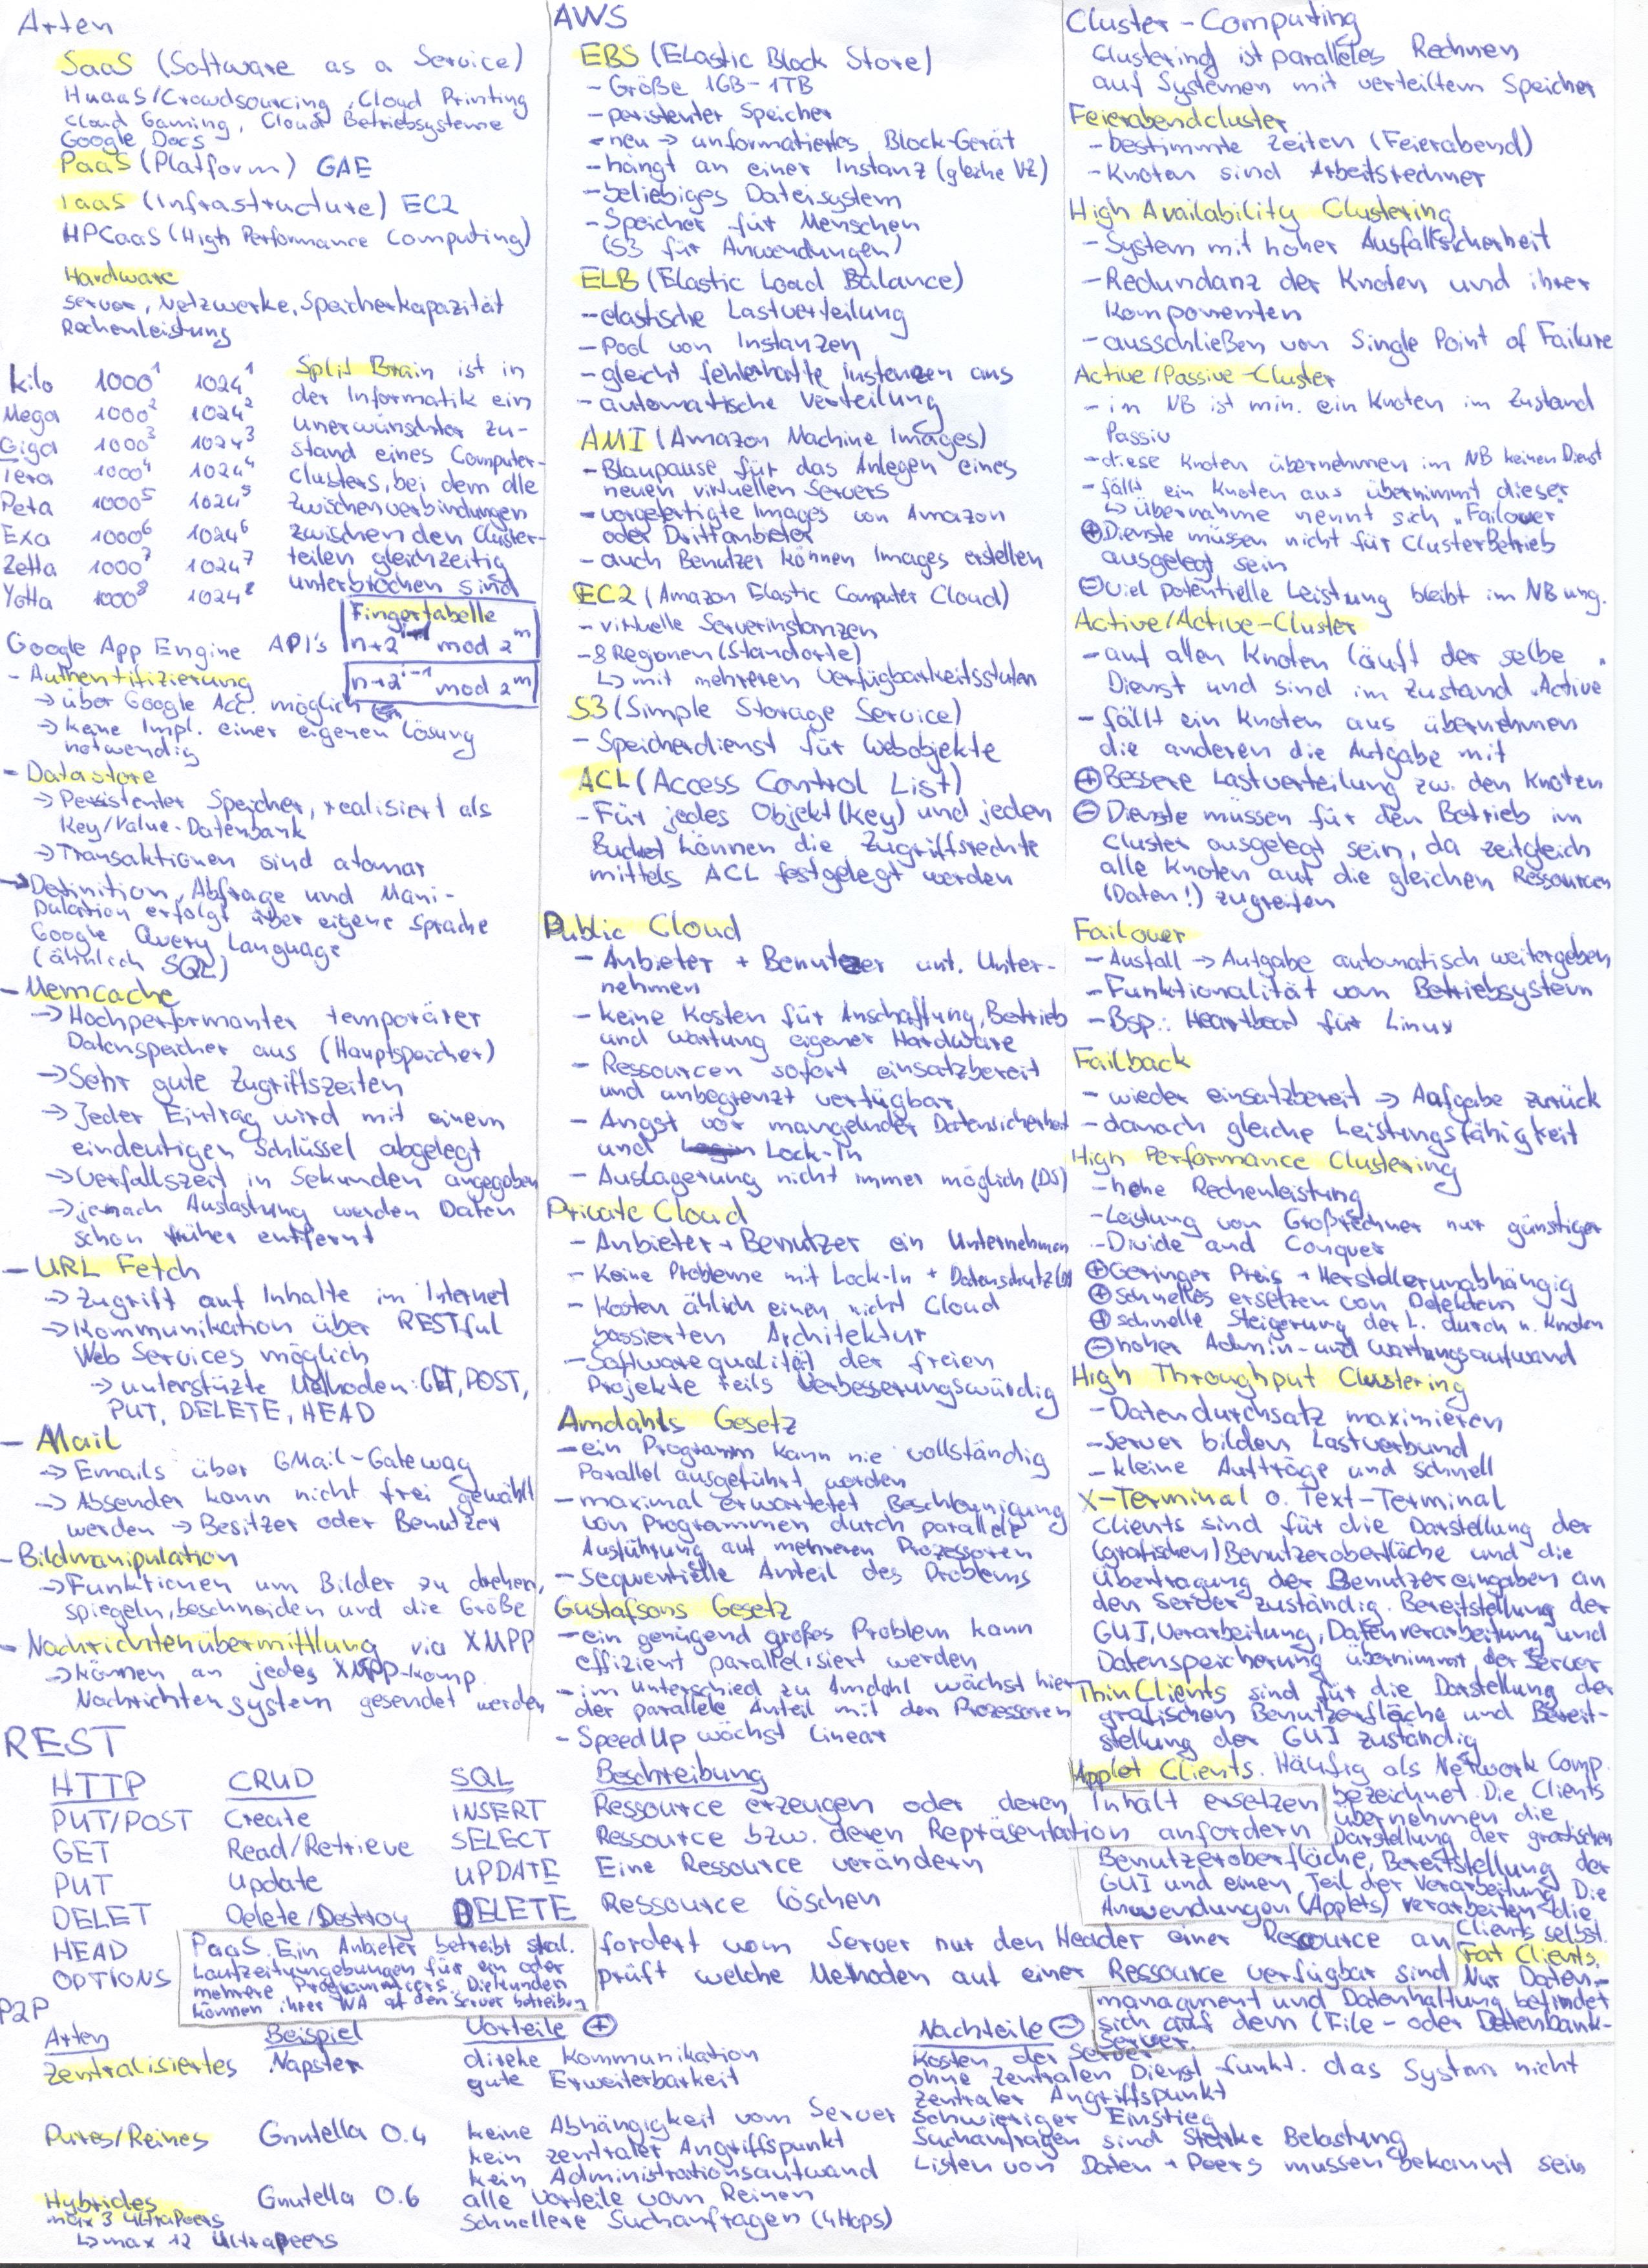 Arten
SaaS (Software as a Service)
HuaaS/Crowdsourcing, Cloud Printing
Cloud Gaming, Cloud Betriebsysteme
Google Docs
PaaS (Platform) GAE
IaaS (Infrastructure) EC2
HPCaaS (High Performance Computing)
Hardware
Server, Netzwerke, Speicherkapazität
Rechenleistung
kilo 1000^1 1024^1
Mega 1000^2 1024^2
Giga 1000^3 1024^3
Tera 1000^4 1024^4
Peta 1000^5 1024^5
Exa 1000^6 1024^6
Zetta 1000^7 1024^7
Yotta 1000^8 1024^8
Split Brain ist in
der Informatik ein
unerwünschter Zu-
stand eines Computer-
Clusters, bei dem alle
Zwischenverbindungen
zwischen den Cluster-
teilen gleichzeitig
unterbrochen sind
Fingertabelle
n+2 mod 2^m
n+2^i-1 mod 2^m
Google App Engine API's
- Authentifizierung
→ über Google Acc. möglich
→ keine Impl. einer eigenen Lösung
notwendig
- Datastore
→ Persistenter Speicher, realisiert als
Key/Value-Datenbank
→ Transaktionen sind atomar
→ Definition, Abfrage und Mani-
pulation erfolgt über eigene Sprache
Google Query Language
(ähnlich SQL)
- Memcache
→ Hochperformanter temporärer
Datenspeicher aus (Hauptspeicher)
→ Sehr gute Zugriffszeiten
→ Jeder Eintrag wird mit einem
eindeutigen Schlüssel abgelegt
→ Verfallszeit in Sekunden angegeben
→ jenach Auslastung werden Daten
schon früher entfernt
- URL Fetch
→ Zugriff auf Inhalte im Internet
→ Kommunikation über RESTful
Web Services möglich
→ unterstüzte Methoden: GET, POST,
PUT, DELETE, HEAD
- Mail
→ Emails über GMail-Gateway
→ Absender kann nicht frei gewählt
werden → Besitzer oder Benutzer
- Bildmanipulation
→ Funktionen um Bilder zu drehen,
spiegeln, beschneiden und die Größe
- Nachrichtenübermittlung via XMPP
→ können an jedes XMPP-komp.
Nachrichtensystem gesendet werden
AWS
EBS (Elastic Block Store)
- Größe 1GB-1TB
- peristenter Speicher
- neu → unformatiertes Block-Gerät
- hängt an einer Instanz (gleiche VZ)
- beliebiges Dateisystem
- Speicher für Menschen
(S3 für Anwendungen)
ELB (Elastic Load Balance)
- elastische Lastverteilung
- Pool von Instanzen
- gleicht fehlerhafte Instanzen aus
- automatische Verteilung
AMI (Amazon Machine Images)
- Blaupause für das Anlegen eines
neuen virtuellen Servers
- vorgefertigte Images von Amazon
oder Drittanbieter
- auch Benutzer können Images erstellen
EC2 (Amazon Elastic Computer Cloud)
- virtuelle Serverinstanzen
- 8 Regionen (Standorte)
↳ mit mehreren Verfügbarkeitsstufen
S3 (Simple Storage Service)
- Speicherdienst für Webobjekte
ACL (Access Control List)
- Für jedes Objekt (key) und jeden
Bucket können die Zugriffsrechte
mittels ACL festgelegt werden
Public Cloud
- Anbieter + Benutzer unt. Unter-
nehmen
- keine Kosten für Anschaffung, Betrieb
und Wartung eigener Hardware
- Ressourcen sofort einsatzbereit
und unbegrenzt verfügbar
- Angst vor mangelnder Datensicherheit
und Lock-In
- Auslagerung nicht immer möglich (DS)
Private Cloud
- Anbieter + Benutzer ein Unternehmen
- Keine Probleme mit Lock-In + Datenschutz
- Kosten ählich einen nicht Cloud
bassierten Architektur
- Softwarequalität der freien
Projekte teils verbesserungswürdig
Amdahls Gesetz
- ein Programm kann nie vollständig
Parallel ausgeführt werden
- maximal erwartetet Beschleunigung
von Programmen durch parallele
Ausführung auf mehreren Prozessoren
- sequentielle Anteil des Problems
Gustafsons Gesetz
- ein genügend großes Problem kann
effizient parallelisiert werden
- im Unterschied zu Amdahl wächst hier
der parallele Anteil mit den Prozessoren
- SpeedUp wächst linear
Cluster-Computing
Clustering ist paralleles Rechnen
auf Systemen mit verteiltem Speicher
Feierabendcluster
- bestimmte Zeiten (Feierabend)
- Knoten sind Arbeitsrechner
High Availability Clustering
- System mit hoher Ausfallsicherheit
- Redundanz der Knoten und ihrer
Komponenten
- ausschließen von Single Point of Failure
Active/Passive-Cluster
- im NB ist min. ein Knoten im Zustand
Passiv
- diese Knoten übernehmen im NB keinen Dienst
- fällt ein Knoten aus übernimmt dieser
↳ Übernahme nennt sich „Failover"
⊕ Dienste müssen nicht für Clusterbetrieb
ausgelegt sein
⊖ Viel potentielle Leistung bleibt im NB ung.
Active/Active-Cluster
- auf allen Knoten läuft der selbe
Dienst und sind im Zustand „Active"
- fällt ein Knoten aus übernehmen
die anderen die Aufgabe mit
⊕ Bessere Lastverteilung zw. den Knoten
⊖ Dienste müssen für den Betrieb im
Cluster ausgelegt sein, da zeitgleich
alle Knoten auf die gleichen Ressourcen
(Daten!) zugreifen
Failover
- Ausfall → Aufgabe automatisch weitergeben
- Funktionalität vom Betriebsystem
- Bsp.: Heartbeat für Linux
Failback
- wieder einsatzbereit → Aufgabe zurück
- danach gleiche Leistungsfähigkeit
High Performance Clustering
- hohe Rechenleistung
- Leistung von Großrechner nur günstiger
- Divide and Conquer
⊕ Geringer Preis + Herstellerunabhängig
⊕ schnelles ersetzen von Defekten
⊕ schnelle Steigerung der L. durch n. Knoten
⊖ hoher Admin- und Wartungsaufwand
High Throughput Clustering
- Datendurchsatz maximieren
- Server bilden Lastverbund
- kleine Aufträge und schnell
X-Terminal o. Text-Terminal
Clients sind für die Darstellung der
(grafischen) Benutzeroberfläche und die
Übertragung der Benutzereingaben an
den Server zuständig. Bereitstellung der
GUI, Verarbeitung, Datenverarbeitung und
Datenspeicherung übernimmt der Server
Thin Clients sind für die Darstellung der
grafischen Benutzerfläche und Bereit-
stellung der GUI zuständig
Applet Clients. Häufig als Network Comp.
bezeichnet. Die Clients
übernehmen die
Darstellung der grafischen
Benutzeroberfläche, Bereitstellung der
GUI und einen Teil der Verarbeitung. Die
Anwendungen (Applets) verarbeiten die
Clients selbst.
Fat Clients.
Nur Daten-
managment und Datenhaltung befindet
sich auf dem (File- oder Datenbank-
Server.
REST
HTTP CRUD SQL Beschreibung
PUT/POST Create INSERT Ressource erzeugen oder deren Inhalt ersetzen
GET Read/Retrieve SELECT Ressource bzw. deren Repräsentation anfordern
PUT Update UPDATE Eine Ressource verändern
DELET Delete/Destroy DELETE Ressource löschen
HEAD fordert vom Server nur den Header einer Ressource an
OPTIONS prüft welche Methoden auf einer Ressource verfügbar sind
PaaS. Ein Anbieter betreibt skal.
Laufzeitumgebungen für ein oder
mehrere Programmiers. Die Kunden
können ihrer WA auf den Server betreiben
P2P
Arten Beispiel Vorteile ⊕ Nachteile ⊖
Zentralisiertes Napster direke Kommunikation Kosten der Server
gute Erweiterbarkeit ohne zentralen Dienst funkt. das System nicht
zentraler Angriffspunkt
Pures/Reines Gnutella 0.4 keine Abhängigkeit vom Server Schwieriger Einstieg
kein zentraler Angriffspunkt Suchanfragen sind starke Belastung
kein Administrationsaufwand Listen von Daten + Peers mussen bekannt sein
Hybrides Gnutella 0.6 alle Vorteile vom Reinen
max 3 UltraPeers schnellere Suchanfragen (4 Hops)
↳ max 12 Ultrapeers